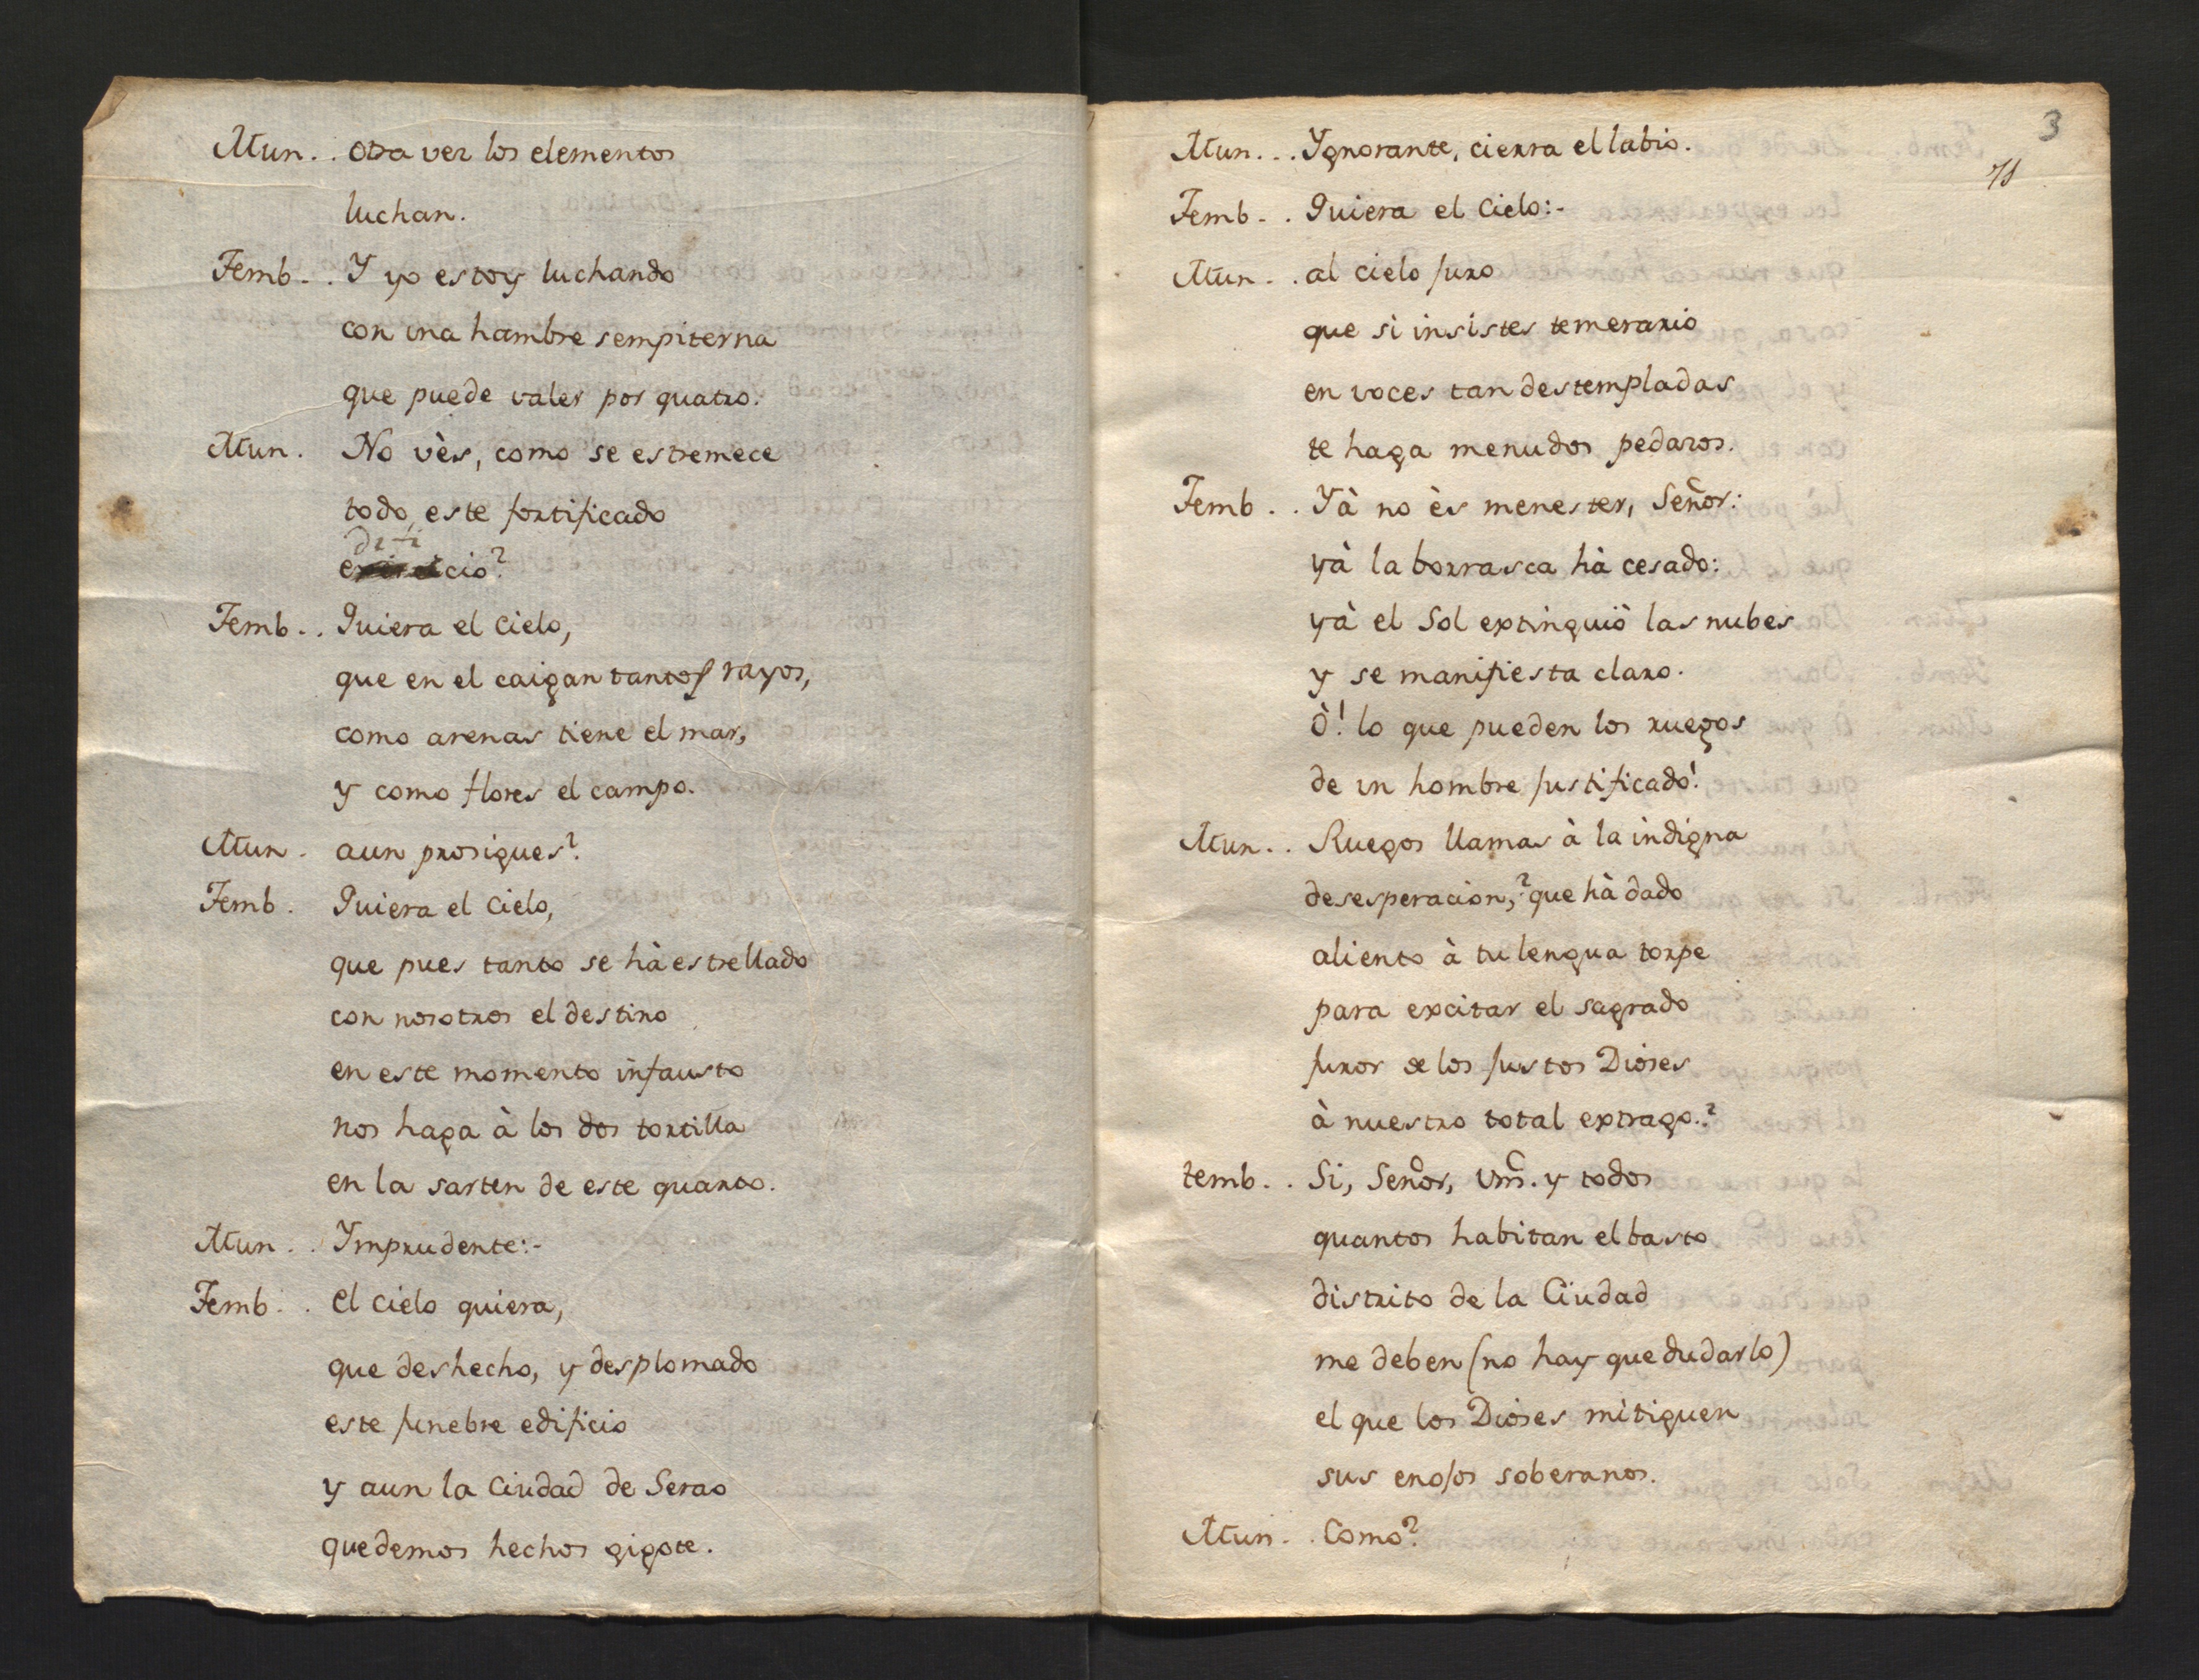 Mun.. otra vez los elementos
luchan.
Temb.. Y yo estoy luchando
con una hambre sempiterna
que puede valer por quatro.
Mun. No vès, como se estremece
todo, este fortificado
edificio?
Temb.. Quiera el Cielo,
que en el caigan tantos rayos,
como arenas tiene el mar,
y como flores el campo.
Mun. aun prosigues?
Temb. Quiera el Cielo,
que pues tanto se hà estrellado
con nosotros el destino
en este momento infausto
nos haga à los dos tortilla
en la sarten de este quarto.
Mun.. Ymprudente:-
Temb.. el Cielo quiera,
que deshecho, y desplomado
este funebre edificio
y aun la Ciudad de Serao
quedemos hechos gigote.
3
Mun... Ygnorante, cierra el labio.
Temb.. Quiera el Cielo:-
Mun.. al cielo juro
que si insistes temerario
en voces tan destempladas
te haga menudos pedazos.
Temb.. Yà no ès menester, Señor:
yà la borrasca hà cesado:
yà el Sol extinguiò las nubes
y se manifiesta claro.
Ò! lo que pueden los ruegos
de un hombre justificado!
Mun.. Ruegos llamas à la indigna
desesperacion,? que hà dado
aliento à tu lengua torpe
para excitar el sagrado
furor de los justos Dioses
à nuestro total extrago.?
temb.. Si, Señor, Vm̃. y todos
quantos habitan el basto
distrito de la Ciudad
me deben (no hay que dudarlo)
el que los Dioses mitiguen
sus enojos soberanos.
Mun.. Como?